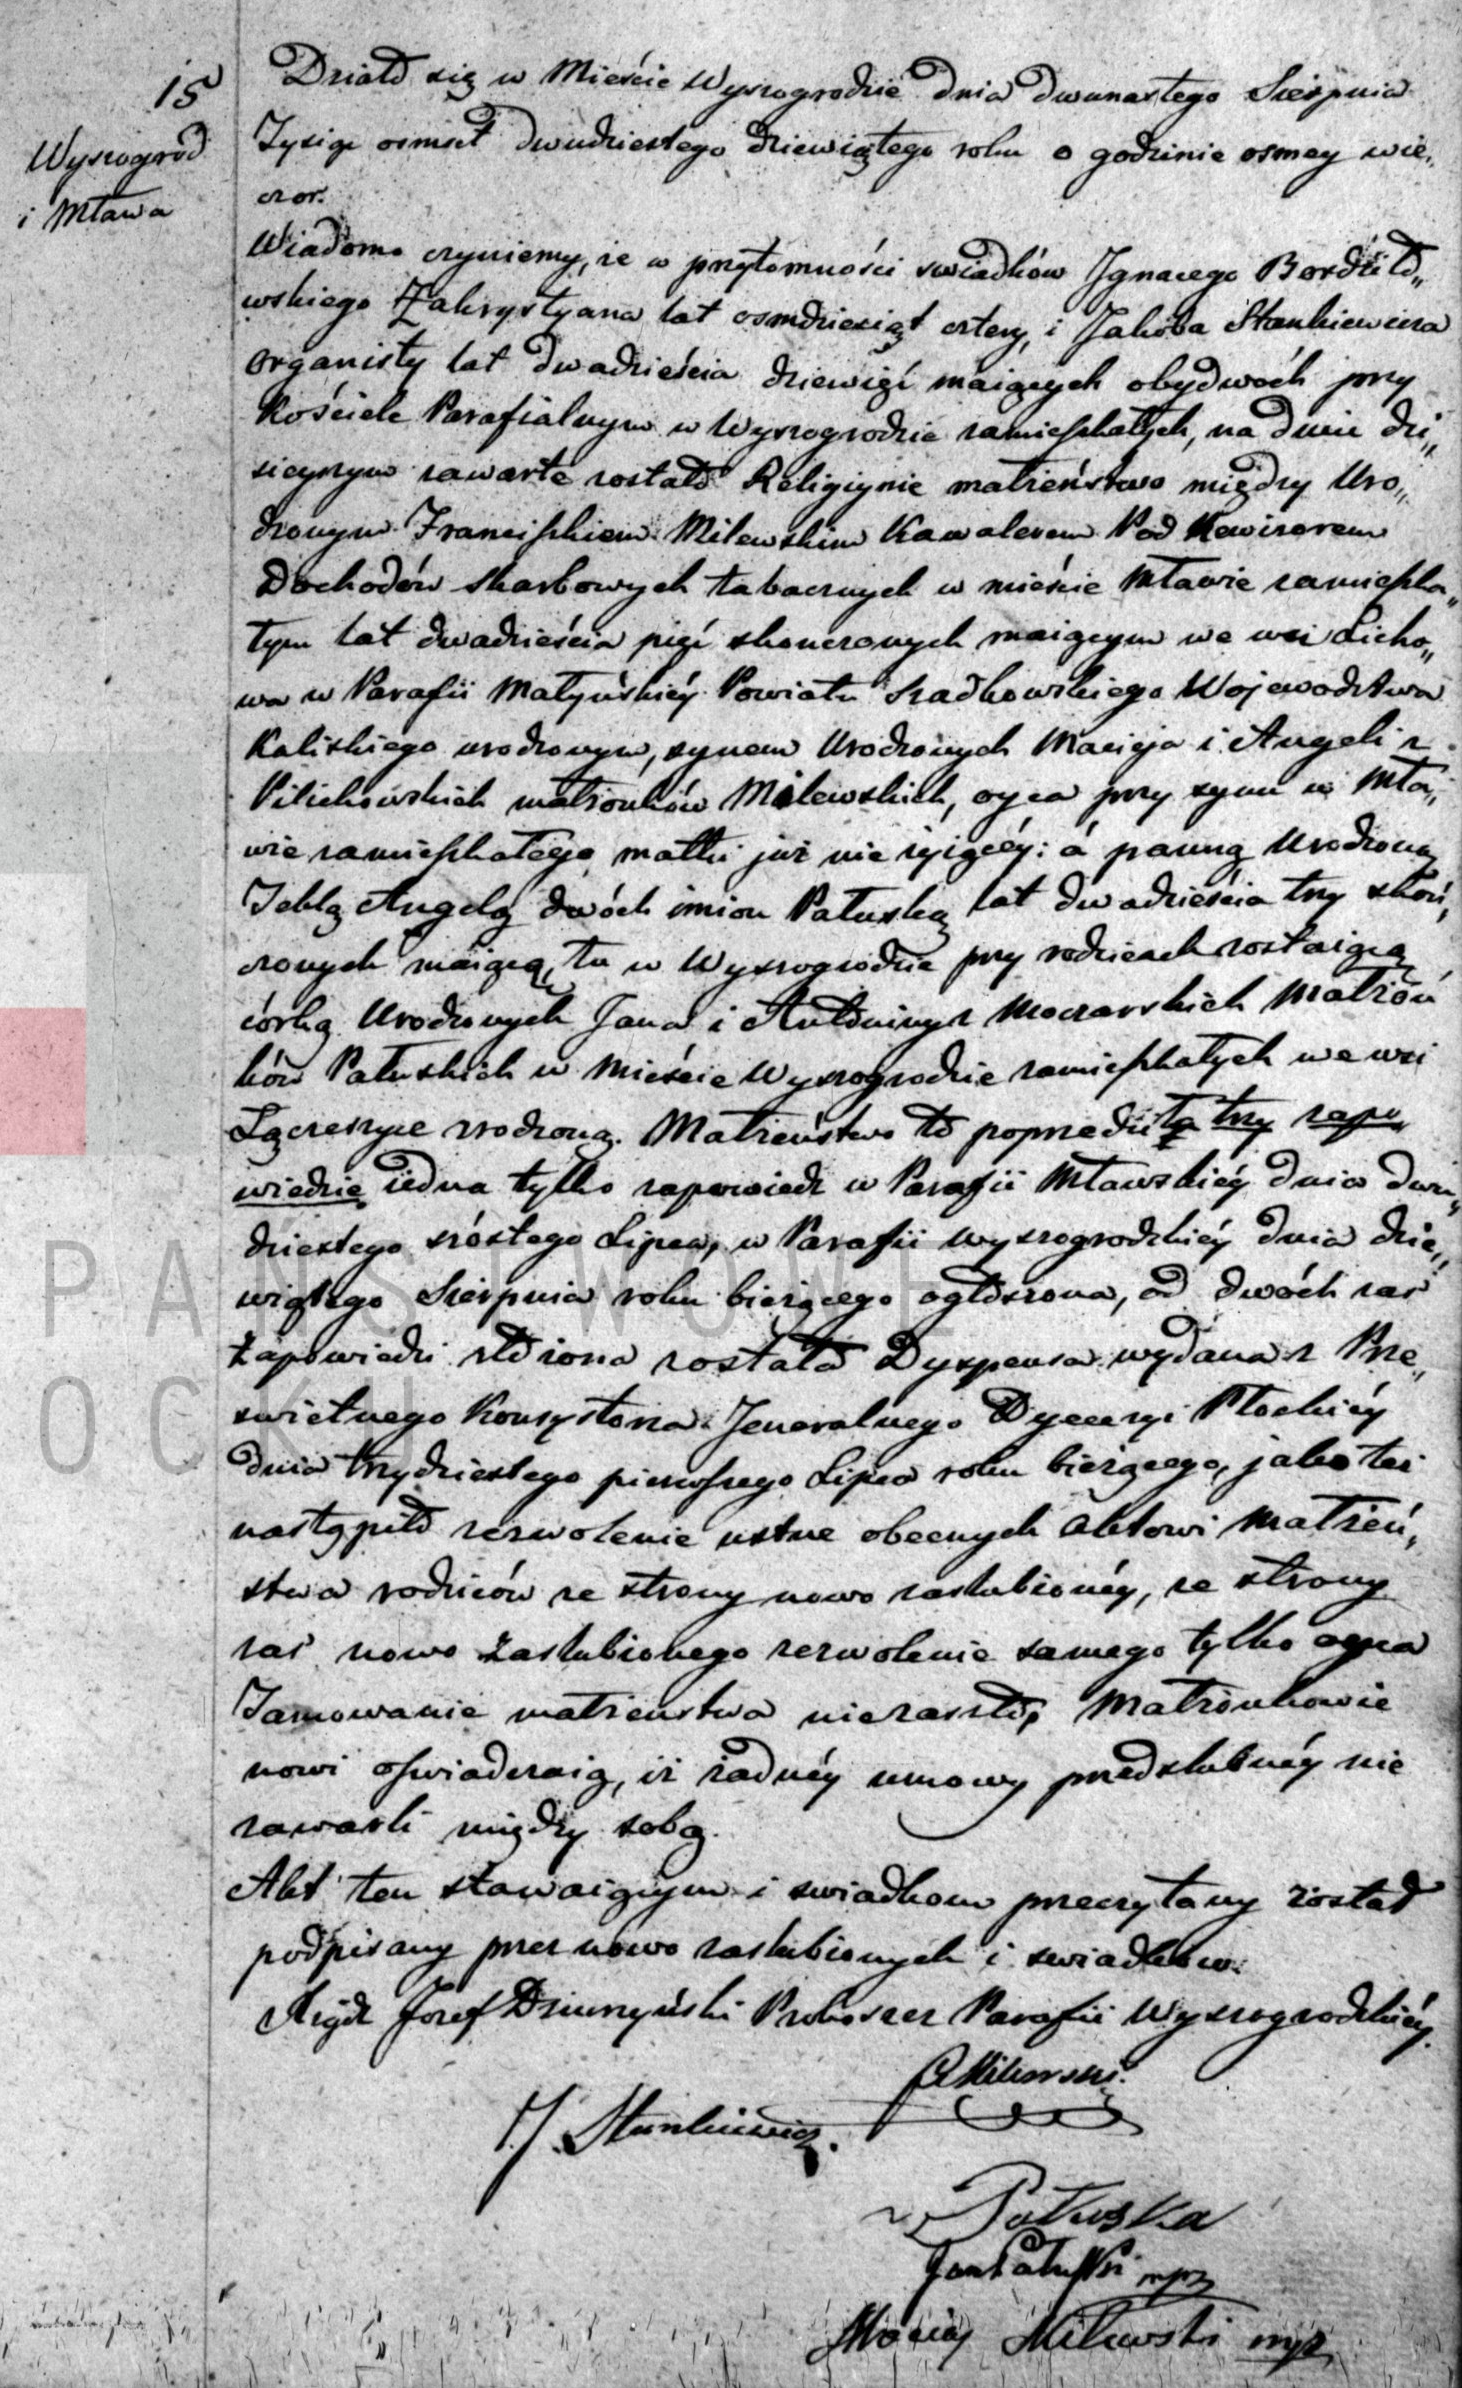 15
Wyszogrod
i Mława
Działo się w Mieście Wyszogrodzie dnia dwunastego Sierpnia
Tysiąc osmset dwudziestego dziewiątego roku o godzinie osmey wie„
czor.
Wiadomo czyniemy, że w przytomności swiadków Ignacego
wskiego Zakrystyana lat osmdziesiąt cztery, i Jakoba Stankiewicza
Organisty lat dwadzieścia dziewięć maiących obydwóch przy
Kościele Parafialnym w Wyszogrodzie zamieszkałych, na dniu dzi„
sieyszym zawarte zostało Religiynie małżeństwo między Uro„
dzonym Franciszkiem Milewskim Kawalerem Pod Rewizorem
Dochodów Skarbowych tabacznych w mieście Mławie zamieszka„
łym lat dwadzieścia pięć skonczonych maiącym we wsi Licho„
wa w Parafii Małyńskiéy Powiatu Szadkowskiego Wojewodztwa
Kaliskiego urodzonym, synem Urodzonych Macieja i Angeli z
Pilichowskich małżonków Milewskich, oyca przy synu w Mła„
wie zamieszkałego, matki już nie żyiącéy: á panną Urodzoną
Teklą Angelą dwóch imion Patuską lat dwadzieścia trzy skoń„
czonych maiącą, tu w Wyszogrodzie przy rodzicach zostaiącą
córką Urodzonych Jana i Antoniny z Moczarskich Małżon
ków Patuskich w Mieście Wyszogrodzie zamieszkałych we wsi
Łączeszyce zrodzoną. Małżeństwo to poprzedziłą trzy zapo„
wiedzie iedna tylko zapowiedz w Parafii Mławskiéy dnia dwu„
dziestego szóstego Lipca, w Parafii wyszogrodzkiéy dnia dzie„
wiątego Sierpnia roku bieżącego ogłoszona, od dwóch zaś
zapowiedzi złożona została Dyspensa wydana z Prze„
swietnego Konsystorza Jeneralnego Dyecezyi Płockiéy
dnia trzydziestego pierwszego Lipca roku bieżącego, jako też
nastąpiło zezwolenie ustne obecnych Aktowi Małżeń„
stwa rodziców ze strony nowo zaslubionéy, ze strony
zaś nowo zaslubionego zezwolenie samego tylko oyca
Tamowanie małżenstwa niezaszło, Małżonkowie
nowi oswiadczaią, iż żadnéy umowy przedslubnéy nie
zawarli między sobą.
Akt ten stawaiącym i swiadkom przeczytany został
podpisany przez nowo zaslubionych i swiadków.
Xiądz Jozef Dziurzyński Proboszcz Parafii Wyszogrodzkiéy.
Milewski.
J. Stankiewicz.
Patuska
Jan Patuski mpr
Maciey Milewski mpr
PAŃSTWOWE
OCKU